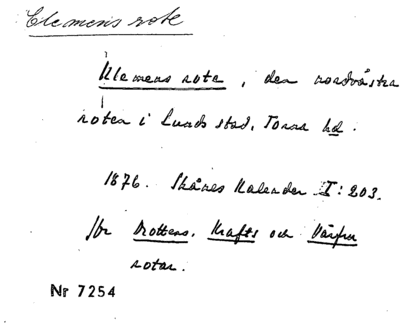 Clemens rote
Klemens rote, den nordvästra
roten i Lunds stad, Torna hd.
1876. Skånes Kalender I: 203.
Jfr Drottens, Krafts och Vårfru
rotar.
Nr 7254